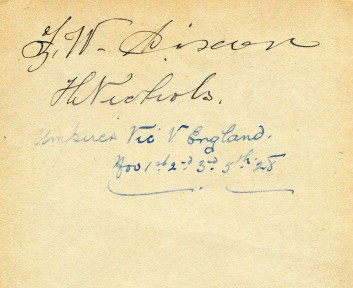 H. Nichols.
Umpires Vic V England.
Nov 1st 2nd 3rd 5th 28